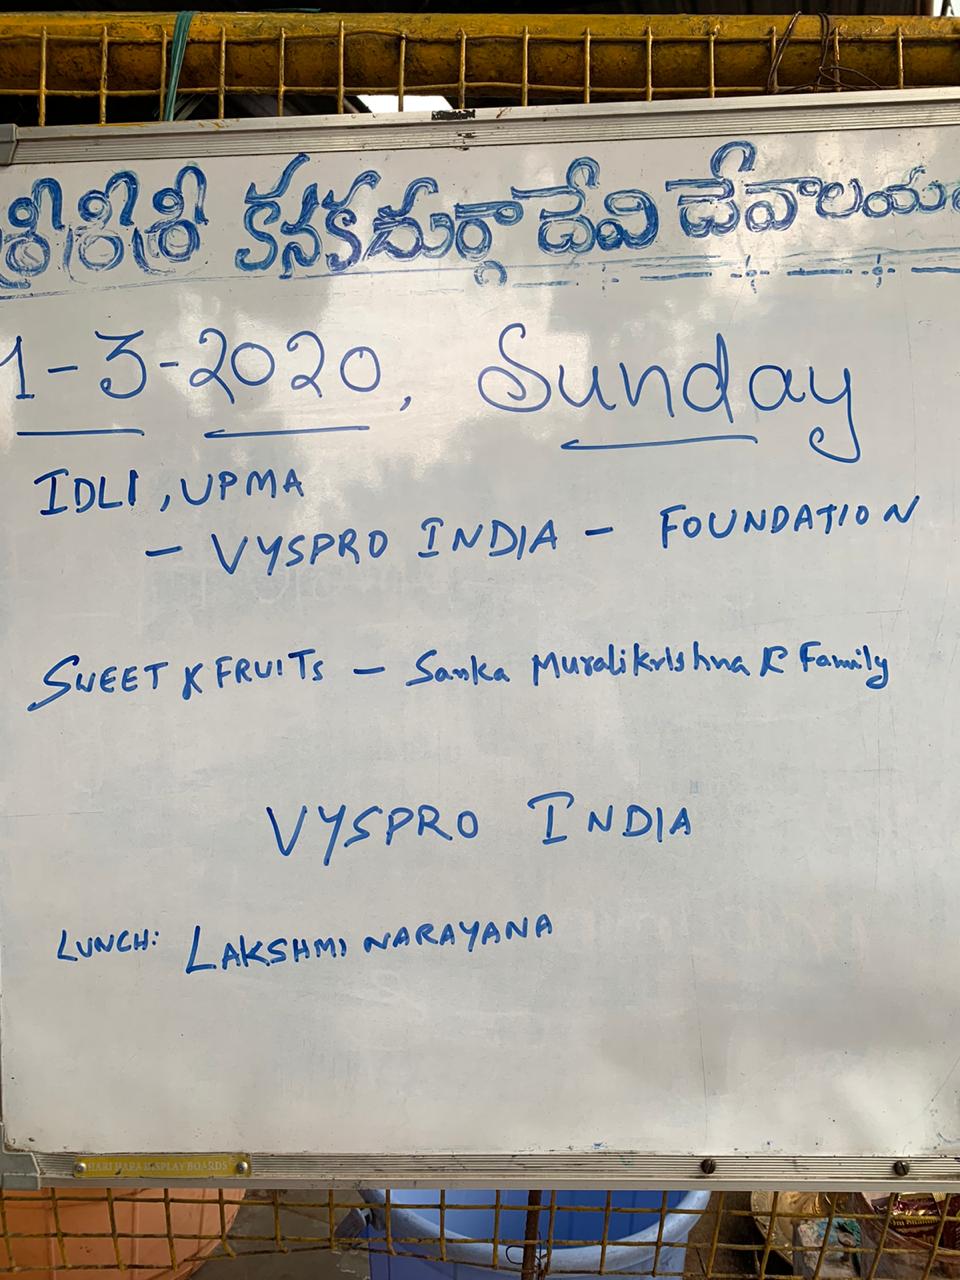 శ్రీశ్రీశ్రీ కనకదుర్గాదేవి దేవాలయం
1-3-2020, Sunday
IDLI, UPMA
- VYSPRO INDIA - FOUNDATION
SWEET & FRUITS - Sanka Muralikrishna & Family
VYSPRO INDIA
LUNCH: LAKSHMI NARAYANA
HARI HARA DISPLAY BOARDS